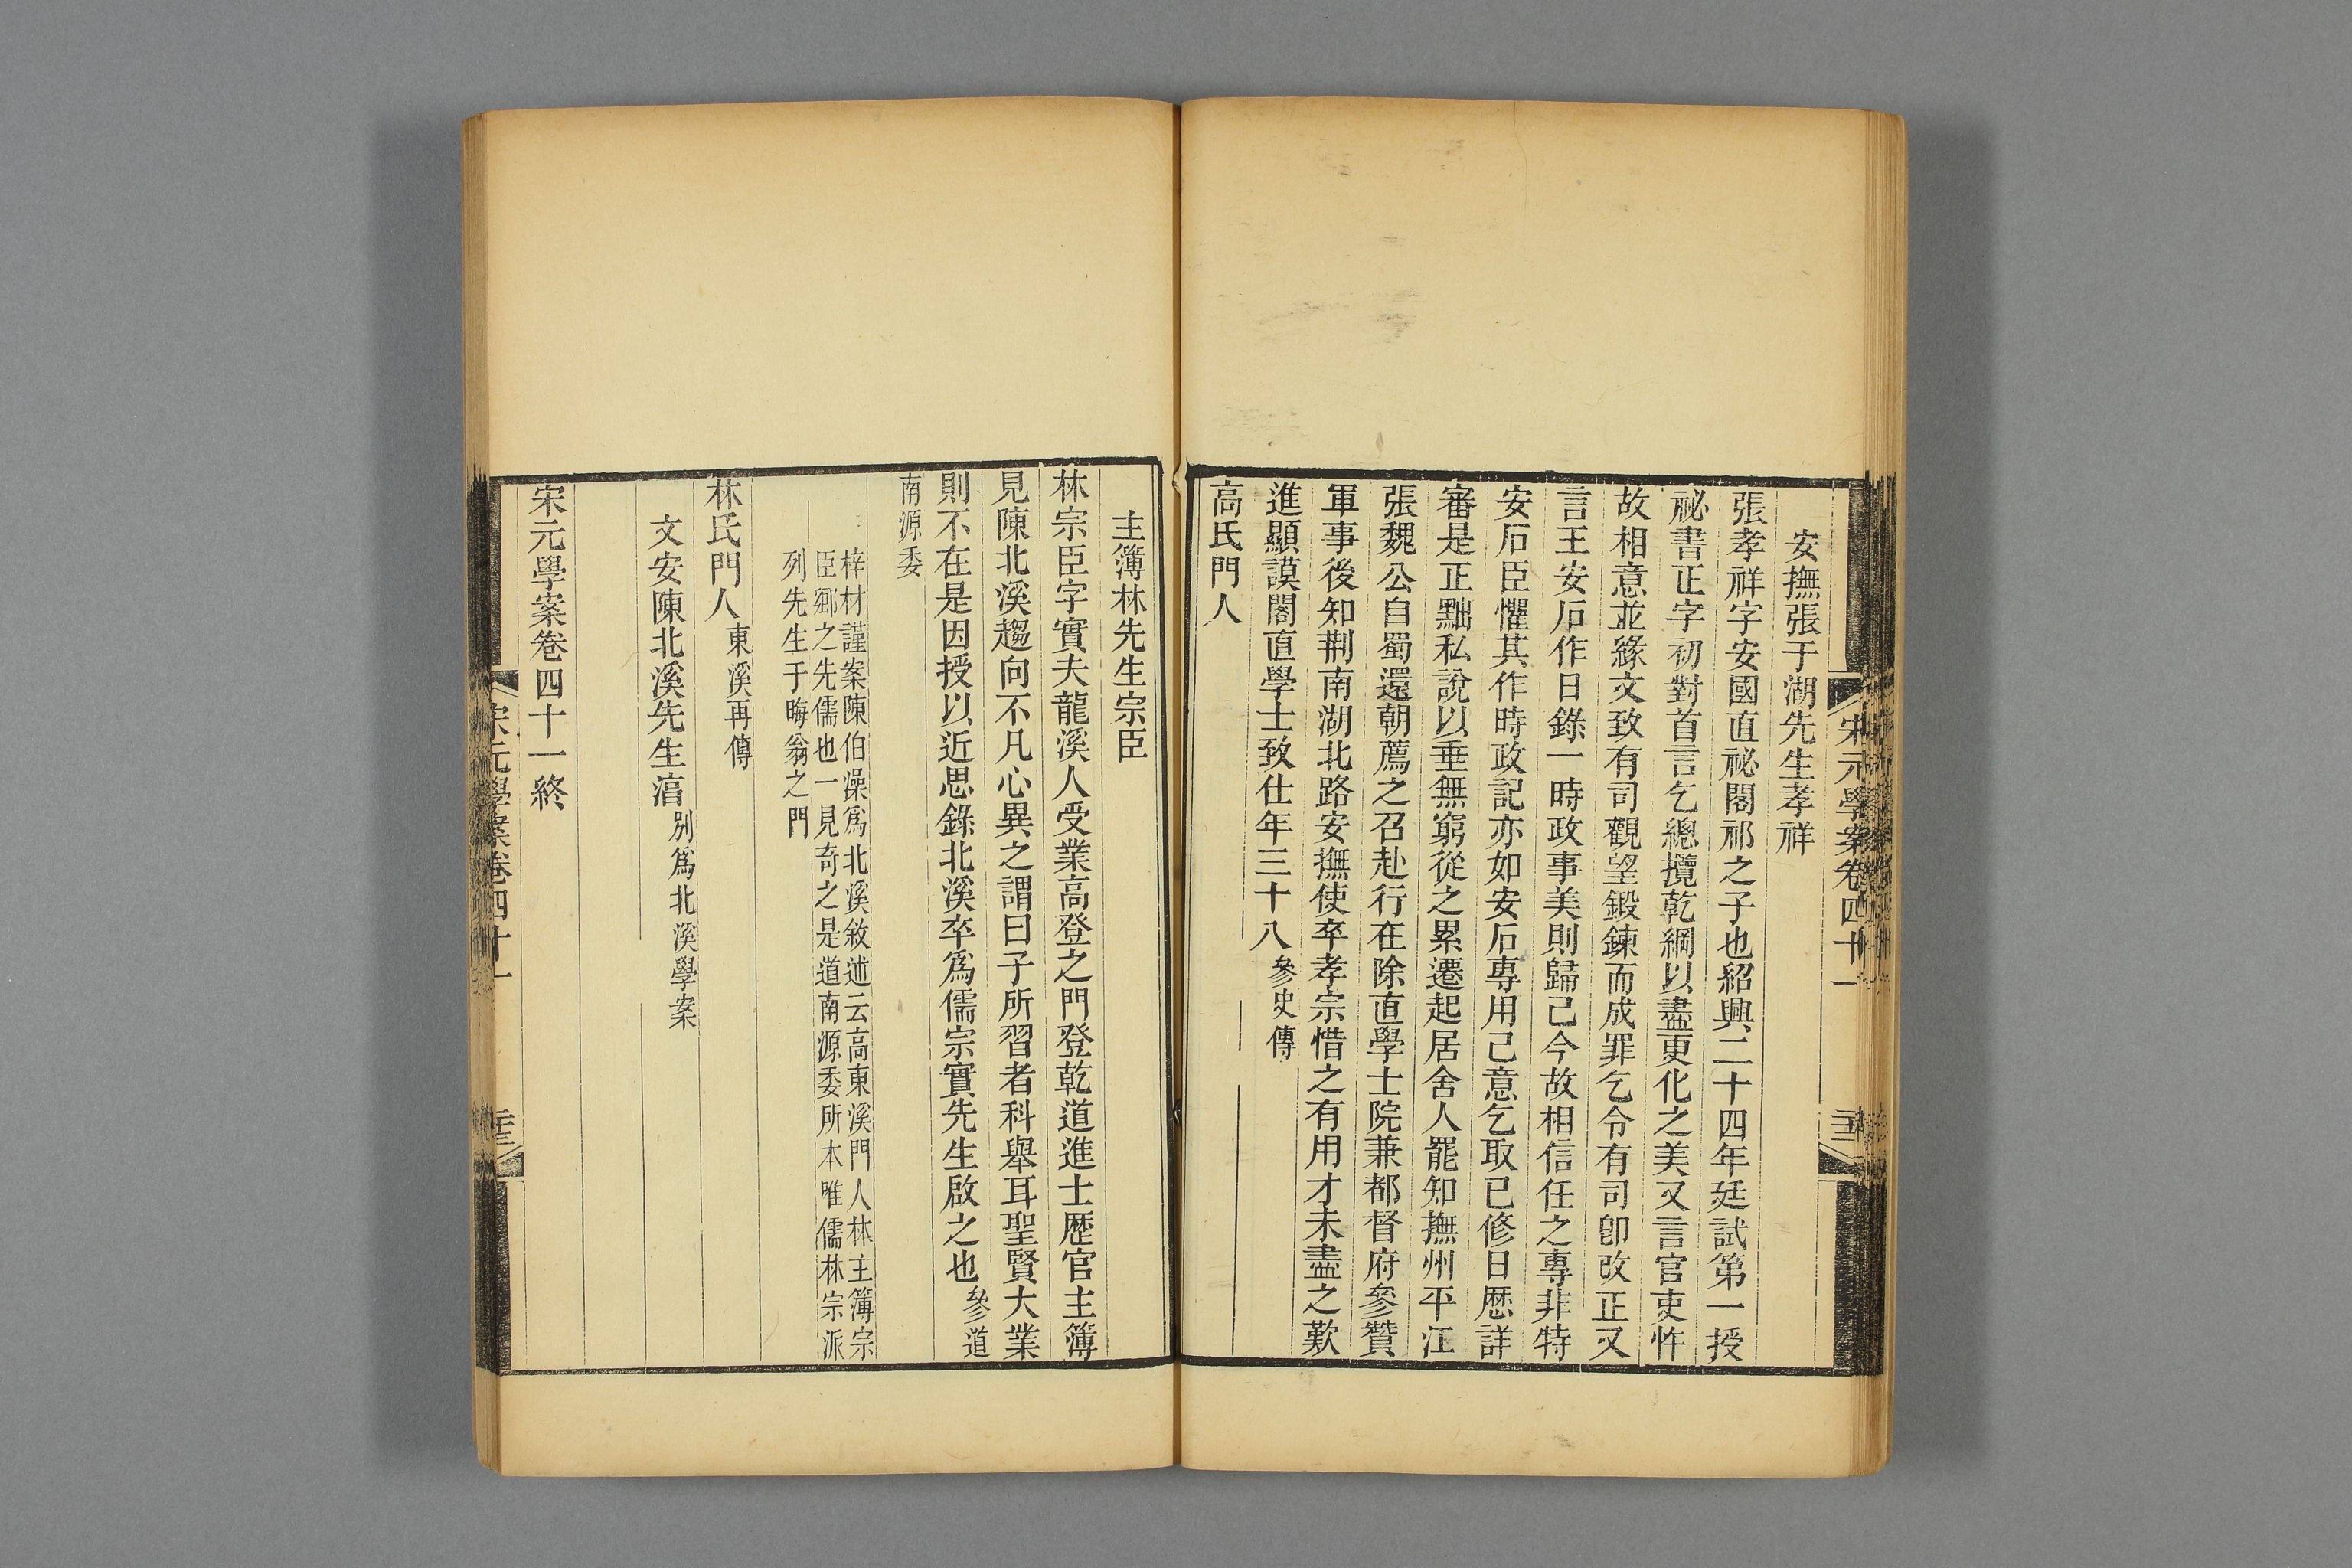 安撫張于湖先生孝祥
張孝祥字安國直祕閣祁之子也紹興二十四年廷試第一授
祕書正字初對首言乞總攬乾綱以盡更化之美又言官吏忤
故相意並緣文致有司觀望鍛鍊而成罪乞令有司卽改正又
言王安石作日錄一時政事美則歸己今故相信任之專非特
安石臣懼其作時政記亦如安石專用己意乞取已修日歷詳
審是正黜私說以垂無窮從之累遷起居舍人罷知撫州平江
張魏公自蜀還朝薦之召赴行在除直學士院兼都督府參贊
軍事後知荆南湖北路安撫使卒孝宗惜之有用才未盡之歎
進顯謨閣直學士致仕年三十八參史傳
高氏門人
主簿林先生宗臣
林宗臣字實夫龍溪人受業高登之門登乾道進士歷官主簿
見陳北溪趨向不凡心異之謂曰子所習者科舉耳聖賢大業
則不在是因授以近思錄北溪卒爲儒宗實先生啟之也參道
南源委
梓材謹案陳伯澡爲北溪敘述云高東溪門人林主簿宗
臣鄉之先儒也一見奇之是道南源委所本唯儒林宗派
列先生于晦翁之門
林氏門人東溪再傳
文安陳北溪先生淳別爲北溪學案
宋元學案卷四十一終
宋元學案卷四十一